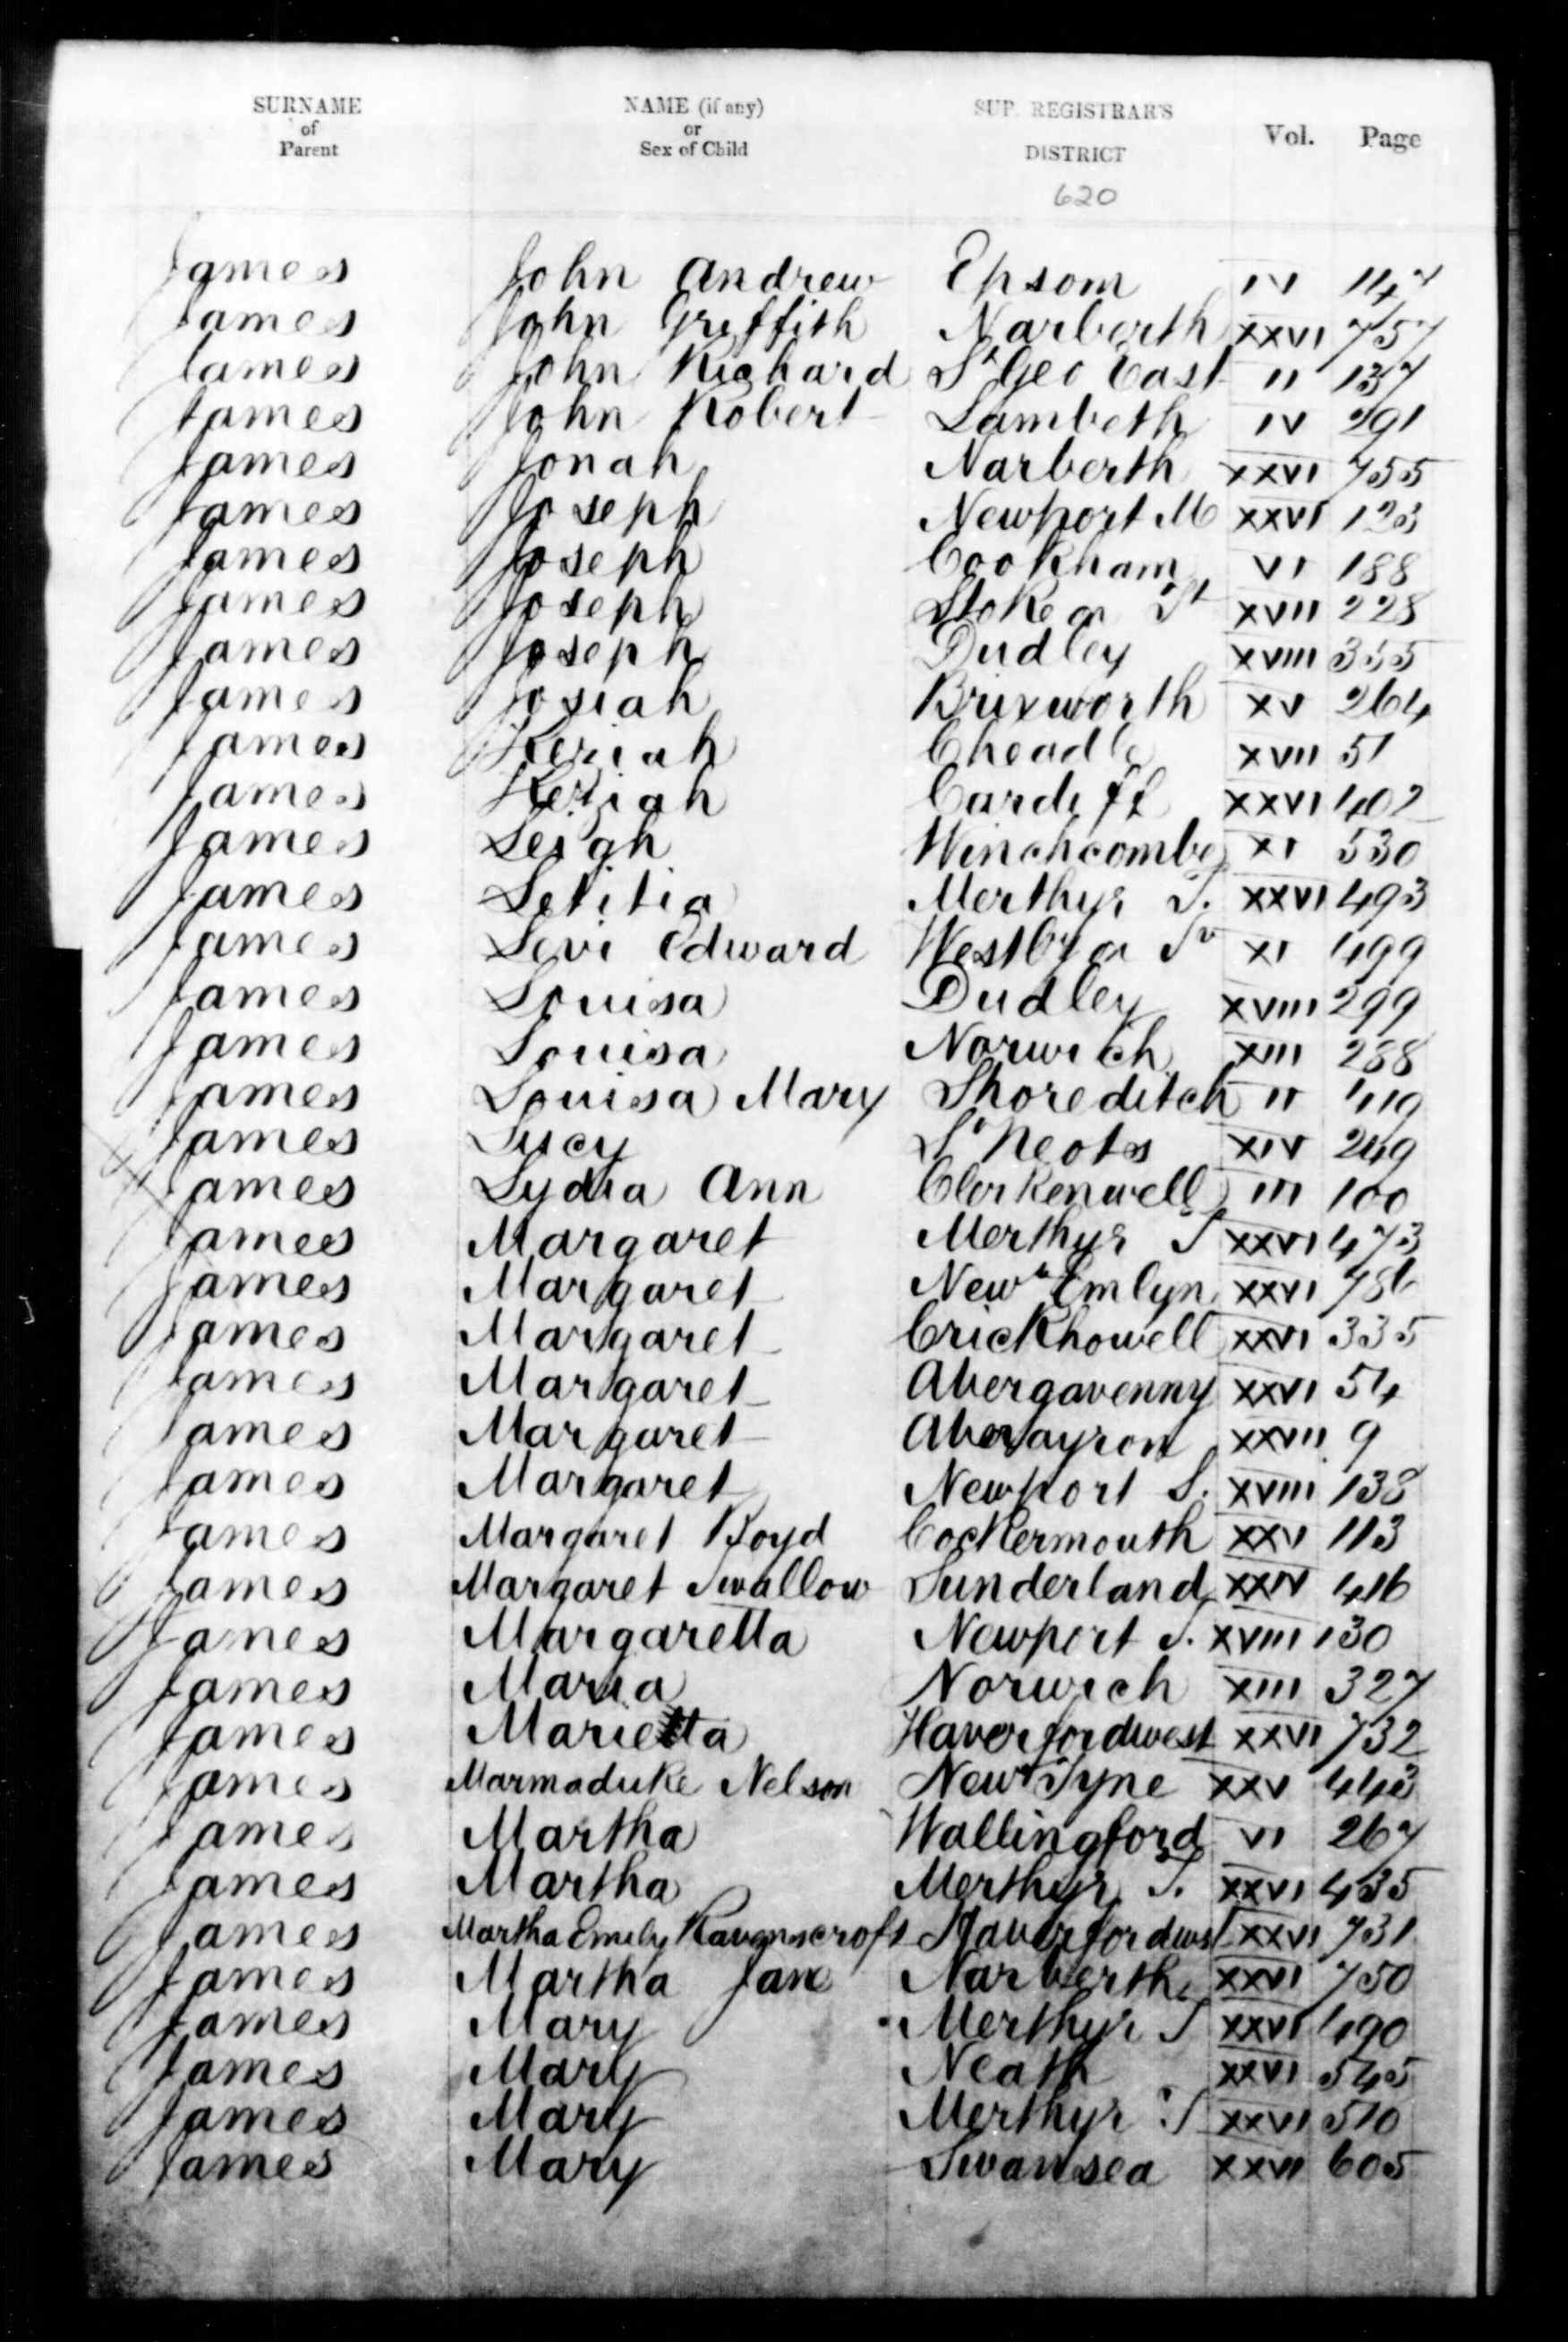 SURNAME of Parent NAME (if any) or Sex of Child SUP. REGISTRAR'S DISTRICT Vol. Page
620
James John Andrew Epsom IV 147
James John Griffith Narberth XXVI 757
James John Richard St Geo East II 137
James John Robert Lambeth IV 291
James Jonah Narberth XXVI 755
James Joseph Newport M XXVI 123
James Joseph Cookham VI 188
James Joseph Stoke on Tt XVII 228
James Joseph Dudley XVIII 355
James Josiah Brixworth XV 264
James Keziah Cheadle XVII 51
James Keziah Cardiff XXVI 402
James Leigh Winchcombe XI 530
James Letitia Merthyr T. XXVI 493
James Levi Edward Westby on Sv XI 499
James Louisa Dudley XVIII 299
James Louisa Norwich XIII 288
James Louisa Mary Shoreditch II 419
James Lucy St Neots XIV 249
James Lydia Ann Clerkenwell III 100
James Margaret Merthyr T XXVI 473
James Margaret Newe Emlyn XXVI 786
James Margaret Crickhowell XXVI 335
James Margaret Abergavenny XXVI 54
James Margaret Aberayron XXVII 9
James Margaret Newport S. XVIII 138
James Margaret Boyd Cockermouth XXV 113
James Margaret Swallow Sunderland XXIV 416
James Margaretta Newport S. XVIII 130
James Maria Norwich XIII 327
James Marietta Haverfordwest XXVI 732
James Marmaduke Nelson Newe Tyne XXV 443
James Martha Wallingford VI 267
James Martha Merthyr T. XXVI 435
James Martha Emily Ravenscroft Haverfordwest XXVI 731
James Martha Jane Narberth XXVI 750
James Mary Merthyr T XXVI 490
James Mary Neath XXVI 545
James Mary Merthyr T XXVI 510
James Mary Swansea XXVI 605